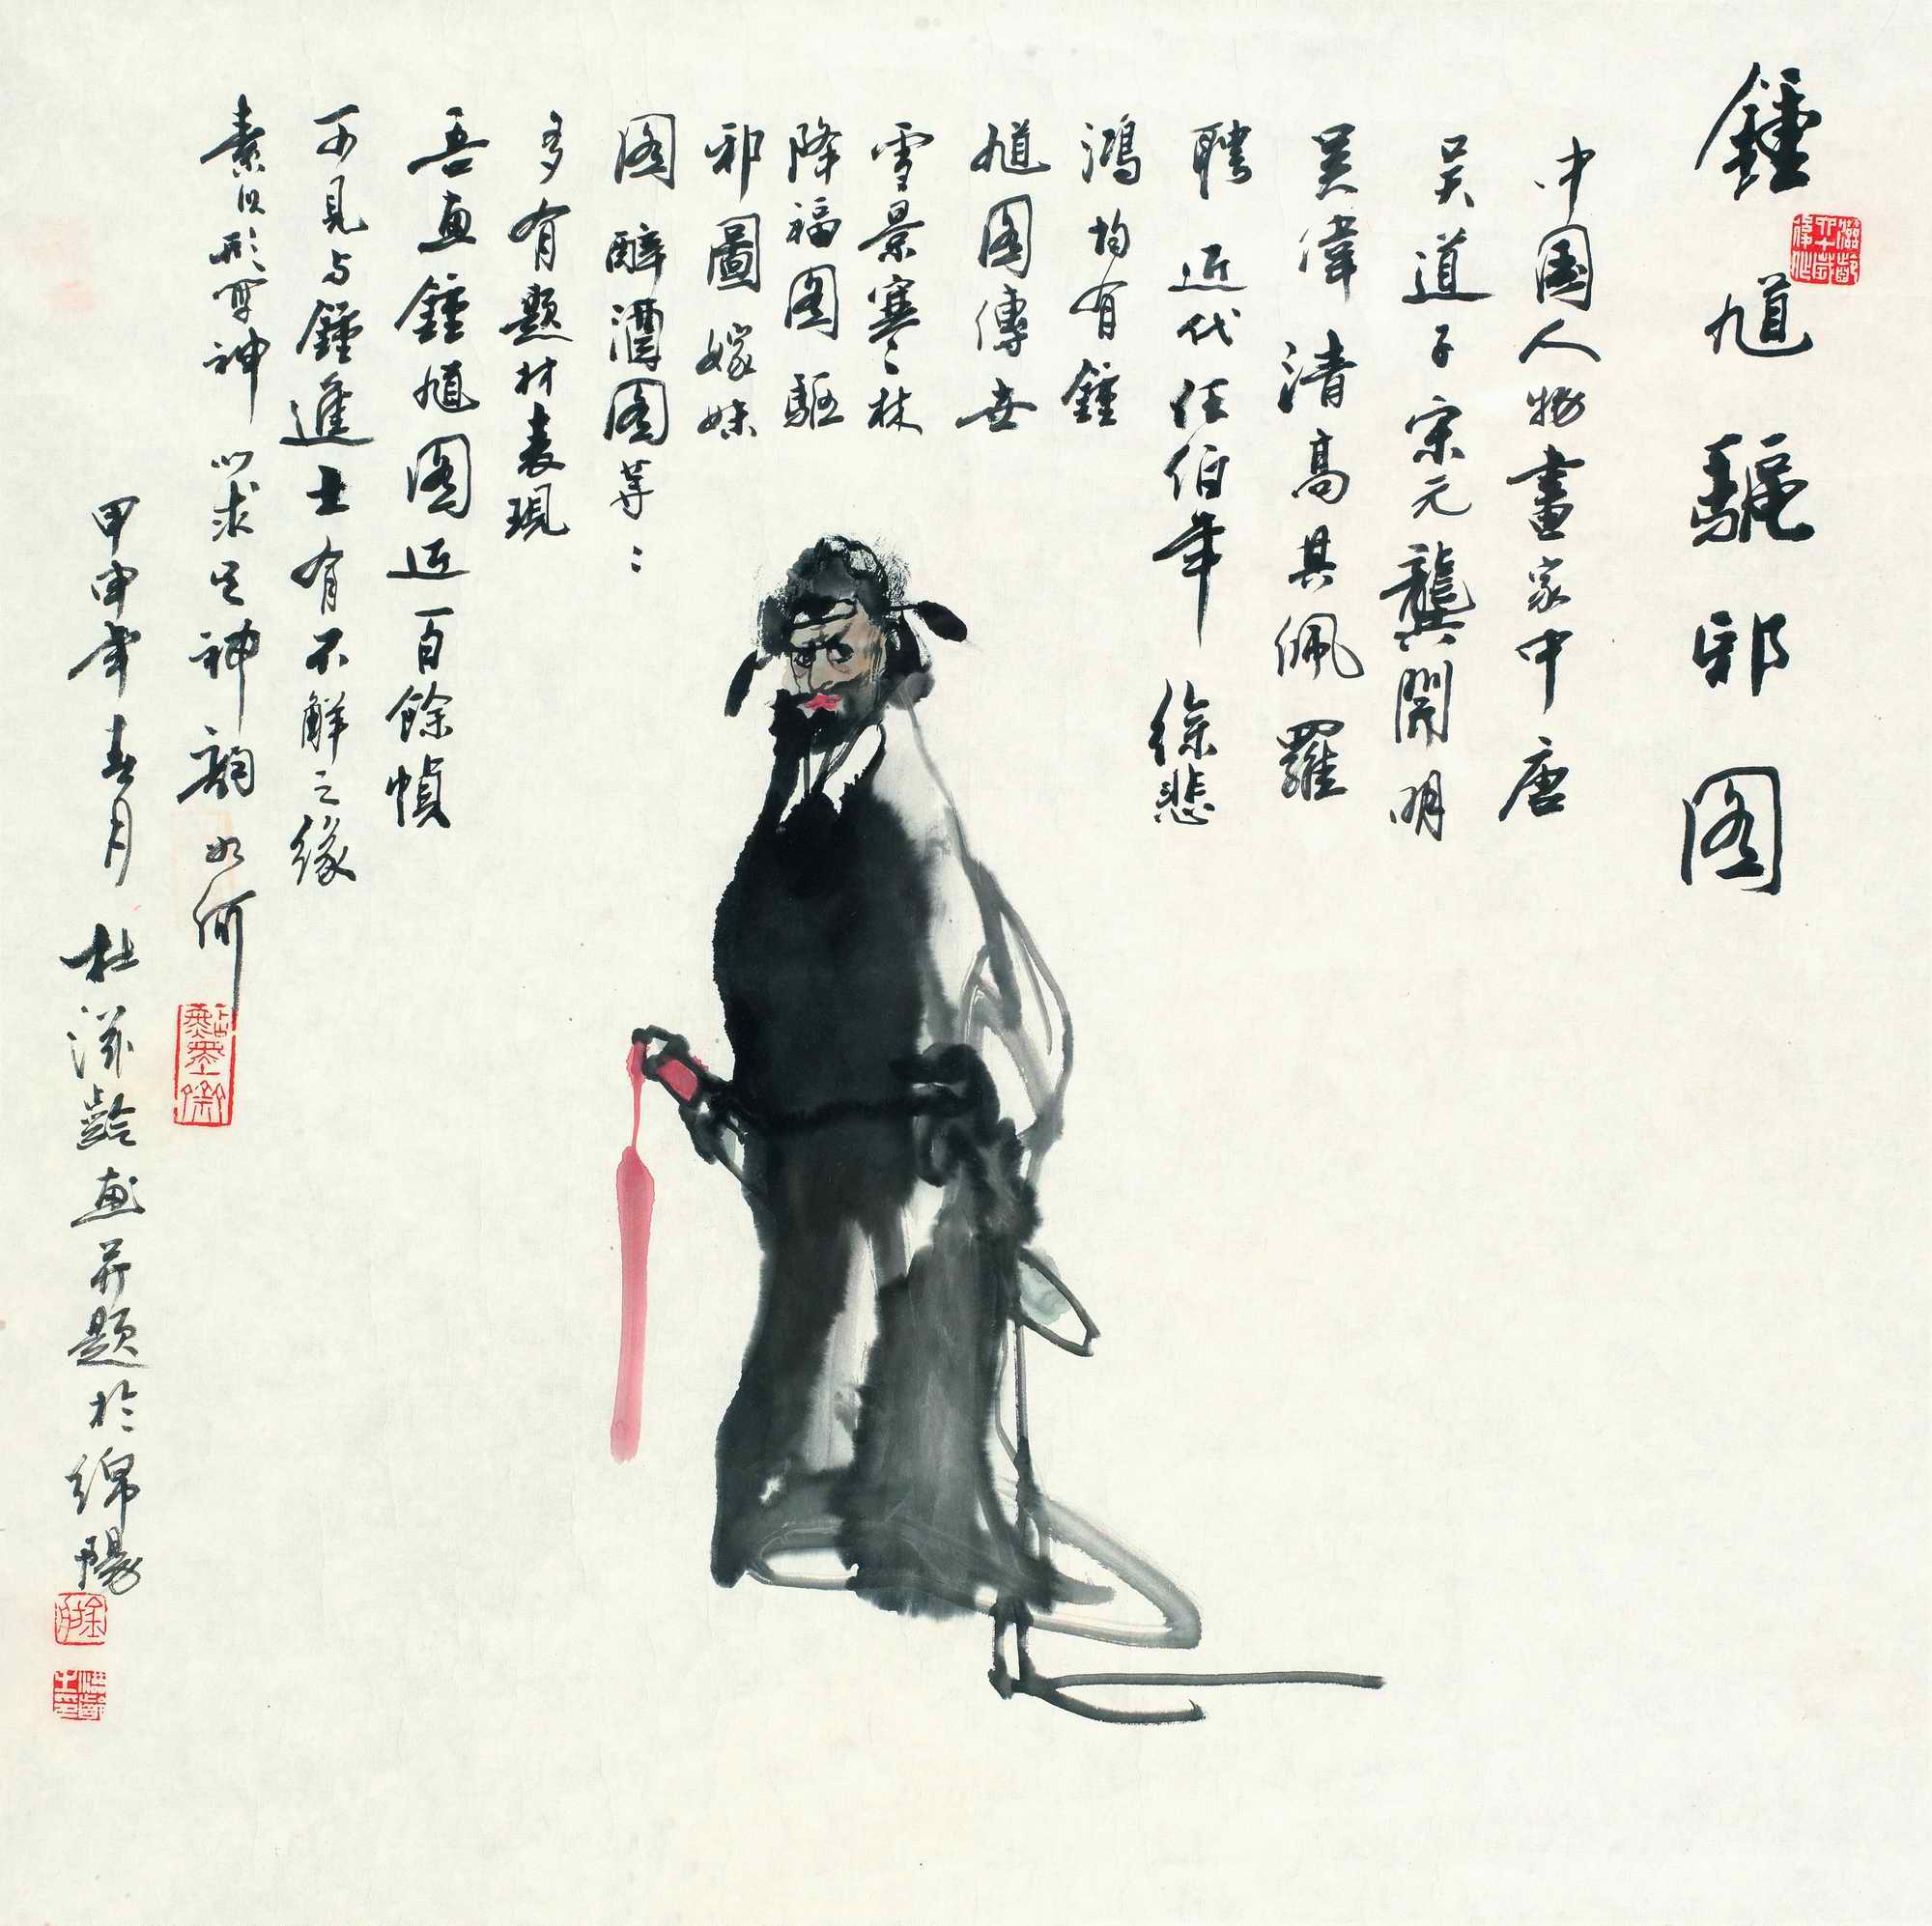 鍾馗驅邪图
中国人物畫家中唐
吴道子宋元龔開明
吴偉清高其佩羅
聘近代任伯年徐悲
鴻均有鍾
馗图傳世
雪景寒〻林
降福图驅
邪圖嫁妹
图醉酒图等〻
多有题材表現
吾画鍾馗图近百餘幀
可見与鍾進士有不解之缘
素以形写神以求其神韻如何
甲申年春月杜滋齡画并题於綿陽